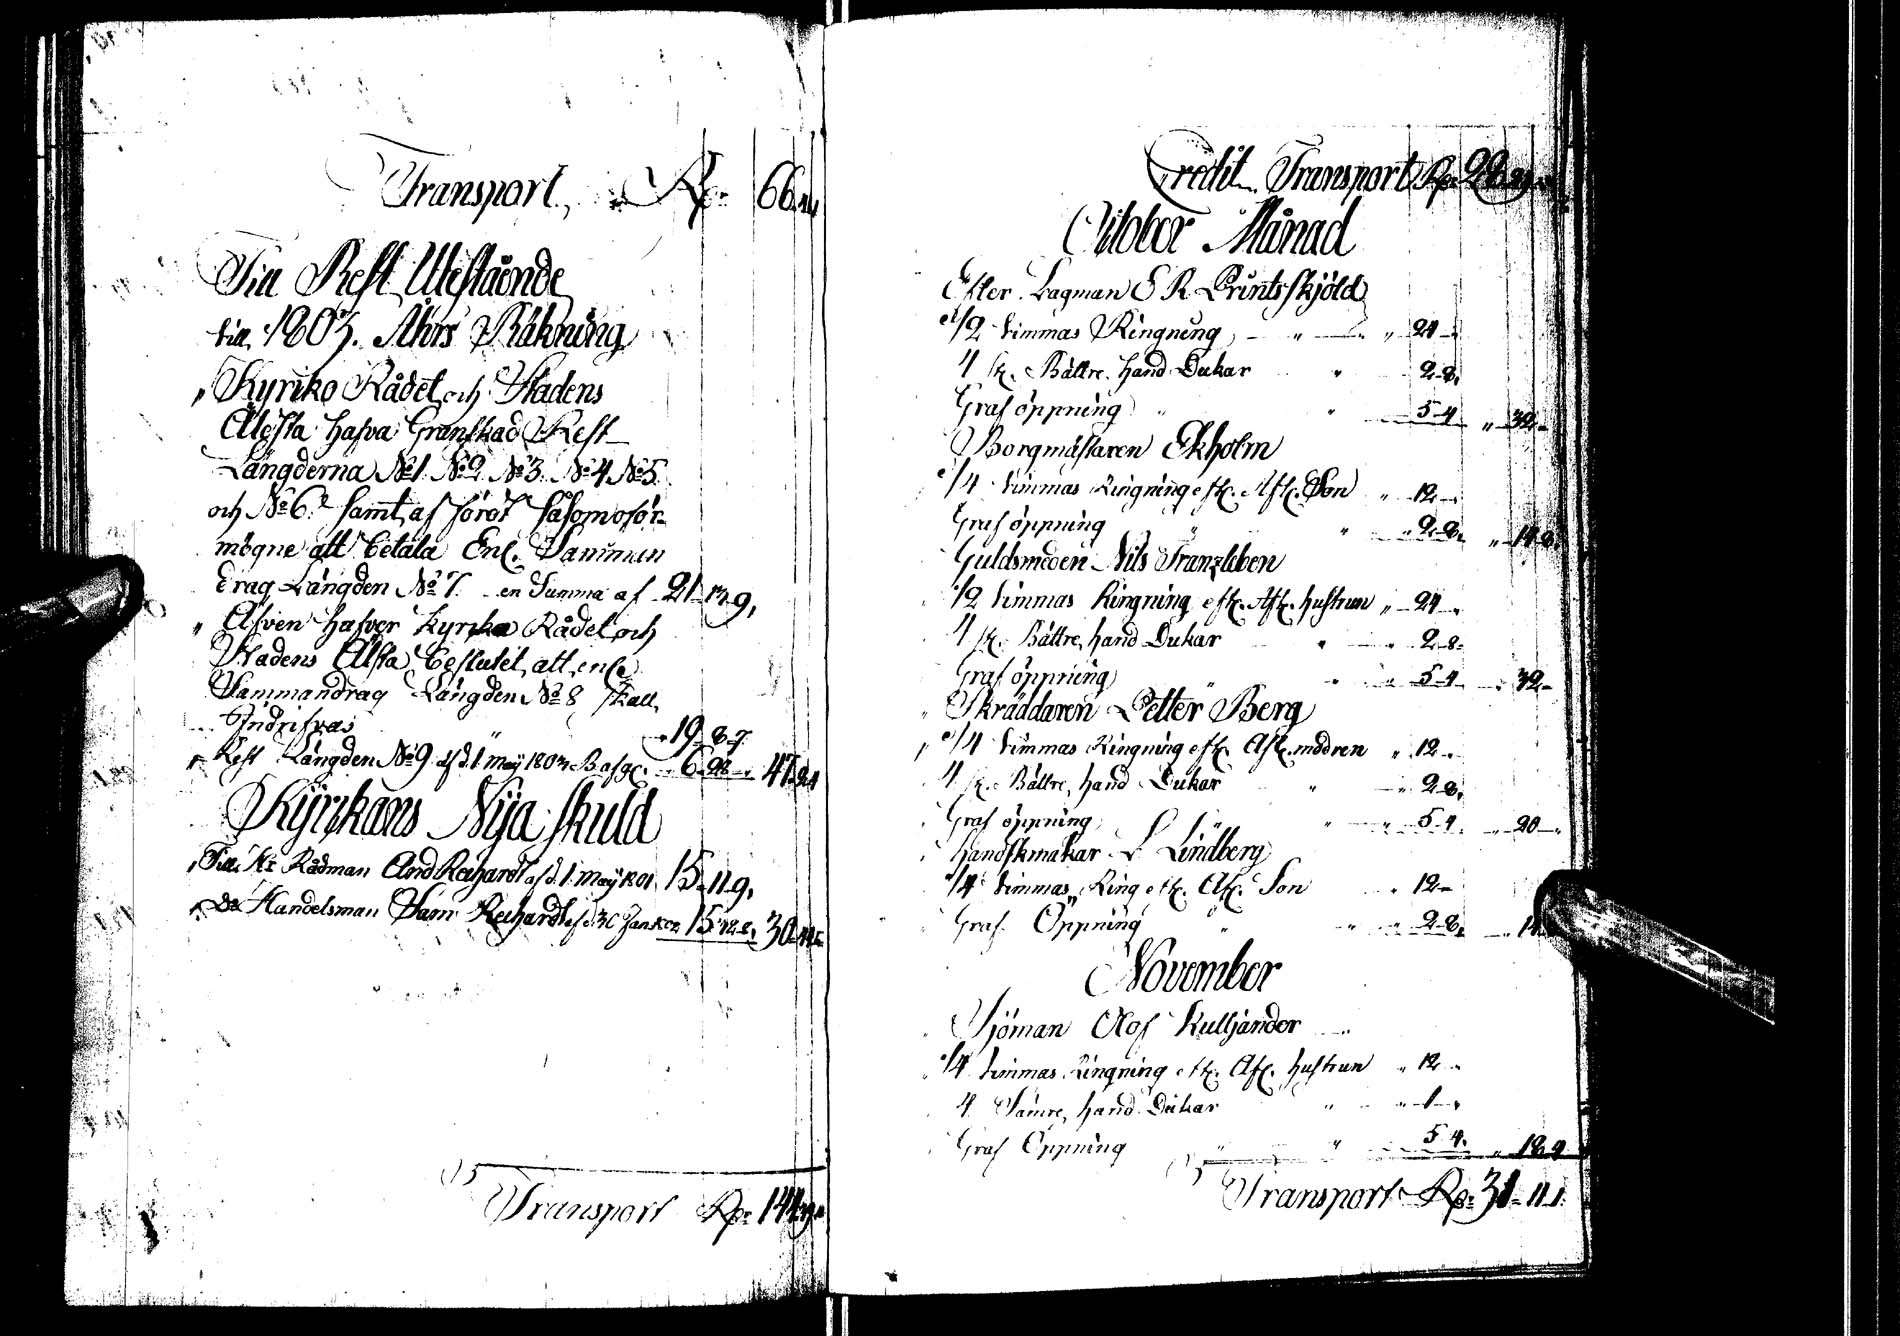 Transport, Rdr 66
Till Rest Utestående
till 1803. Ahrs Räkning
" Kyriko Rådet och Stadens
Älsta hafva Granskad Rest
Längderna No1. No2 No3. No4 No5.
och No6. samt af
mögne att betala Enl. Samman
drag Längden No7. en Summa af 21 9,
" Äfven hafver Kyrko Rådet och
Stadens Älsta beslutet att enl.
Sammandrag Längden No8 skall
Indrifvas " 19-8-7.
" Rest Längden No9 af d. 1 maij 1803 6-28 " 47-24
Kÿrkans Nÿa skuld
" Till Hr Rådman And Reihardt af d. 1 maij 1801 15-11-9,
" Do Handelsman Sam. Reihardt af d. 30 Jan 15 30
Transport Rdr 144
Credit Transport Rdr 28
October Månad
Efter Lagman E R Printsskjöld
1/2 timmas Ringning, " " 24 -
4 st. Bättre hand Dukar " 2-8,
Graf öppning " " 5-4 " 32-
Borgmästaren Ekholm
1/4 timmas Ringning eft. Afl. Son " 12-
Graf öppning " " 2-8, " 14-8,
Guldsmeden Nils Franzleben
1/2 timmas Ringning eft. Afl. hustrun " 24 "
4 st. Bättre, hand Dukar " " 2-8-
Graf öppning " " 5-4 " 32-
" Skräddaren Petter Berg
1/4 timmas Ringning eft. Afl. modren " 12 -
4 st. Bättre, hand Dukar " " 2-8,
Graf öppning, " " 5-4 " 20 "
handskmakar L Lindberg
1/4 timmas Ring eft. Afl. Son " 12-
Graf Öppning " " 2-8, " 14
November
Sjöman Olof Kulljander
1/4 timmas Ringning eft. Afl. hustrun " 12 "
4 Sämre, hand Dukar " " 1 "
Graf Öppning " " 5-4, " 18-4
Transport Rdr 31-11-1